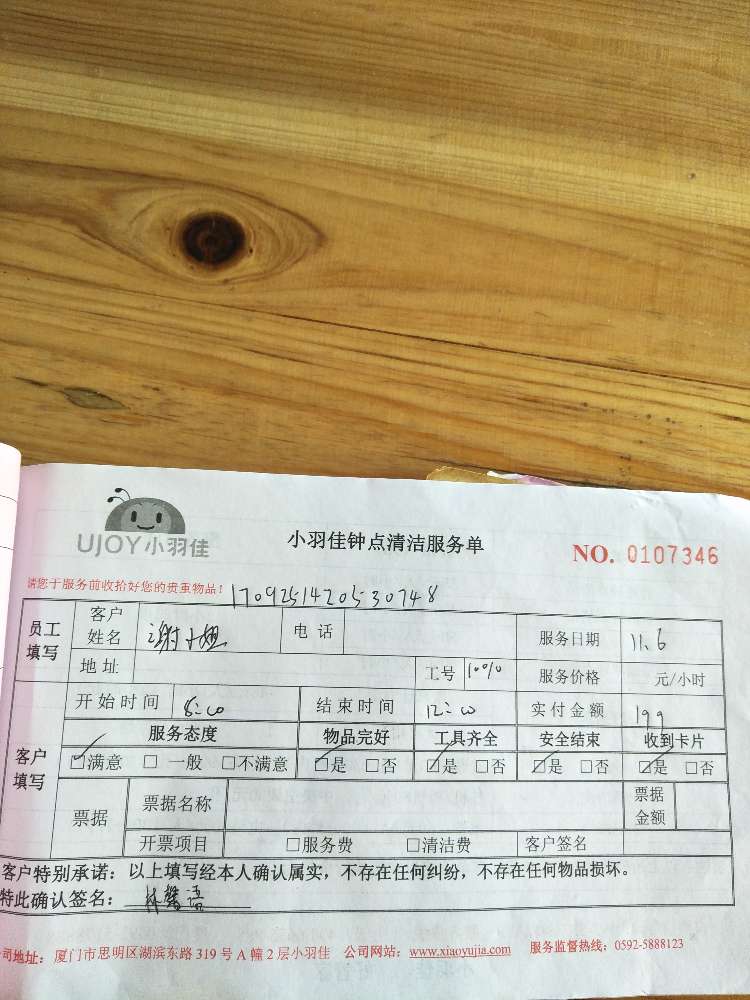 UJOY小羽佳
小羽佳钟点清洁服务单
NO. 0107346
请您于服务前收拾好您的贵重物品！
170925142053 0748
员工填写 客户姓名 谢小姐 电话 服务日期 11.6
地址 工号 服务价格 元/小时
开始时间 8:00 结束时间 12:00 实付金额 199
客户填写 服务态度 物品完好 工具齐全 安全结束 收到卡片
☑满意 □一般 □不满意 ☑是 □否 ☑是 □否 ☑是 □否 ☑是 □否
票据 票据名称 票据金额
开票项目 □服务费 □清洁费 客户签名
客户特别承诺：以上填写经本人确认属实，不存在任何纠纷，不存在任何物品损坏。
特此确认签名：
公司地址：厦门市思明区湖滨东路 319 号 A 幢 2 层小羽佳 公司网站：www.xiaoyujia.com 服务监督热线：0592-5888123